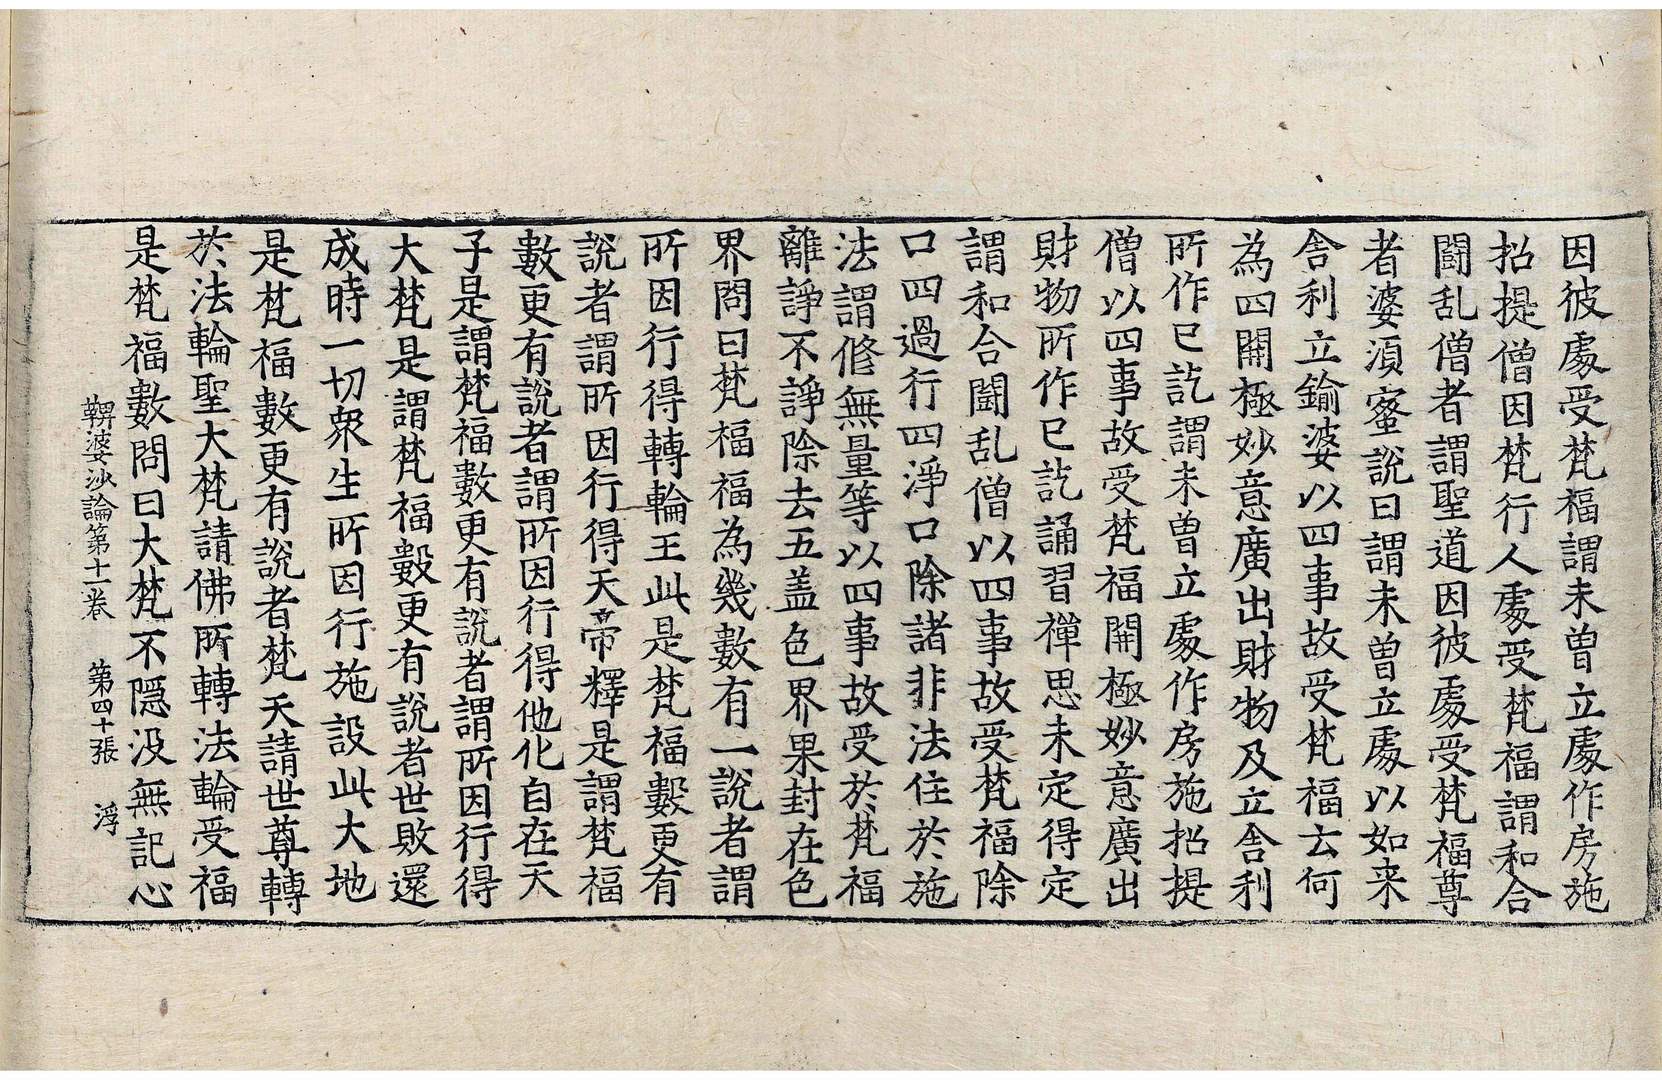 因彼處受梵福謂未曾立處作房施
招提僧因梵行人處受梵福謂和合
鬪乱僧者謂聖道因彼處受梵福尊
者婆湏蜜說曰謂未曾立處以如来
舎利立鍮婆以四事故受梵福云何
為四開極妙意廣出財物及立舎利
所作已訖謂未曾立處作房施招提
僧以四事故受梵福開極妙意廣出
財物所作已訖誦習禪思未定得定
謂和合鬪乱僧以四事故受梵福除
口四過行四淨口除諸非法住於施
法謂修無量等以四事故受於梵福
離諍不諍除去五盖色界果封在色
界問曰梵福福為幾數有一說者謂
所因行得轉輪王此是梵福數更有
說者謂所因行得天帝釋是謂梵福
數更有說者謂所因行得他化自在天
子是謂梵福數更有說者謂所因行得
大梵是謂梵福數更有說者世敗還
成時一切眾生所因行施設此大地
是梵福數更有說者梵天請世尊轉
於法輪聖大梵請佛所轉法輪受福
是梵福數問曰大梵不隱没無記心
鞞婆沙論第十一卷 第四十張 浮